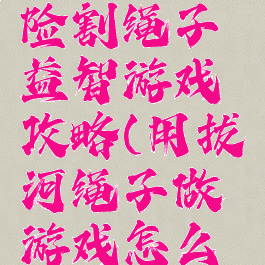 险割绳子
益智游戏
攻略(用拔
河绳子做
游戏怎么